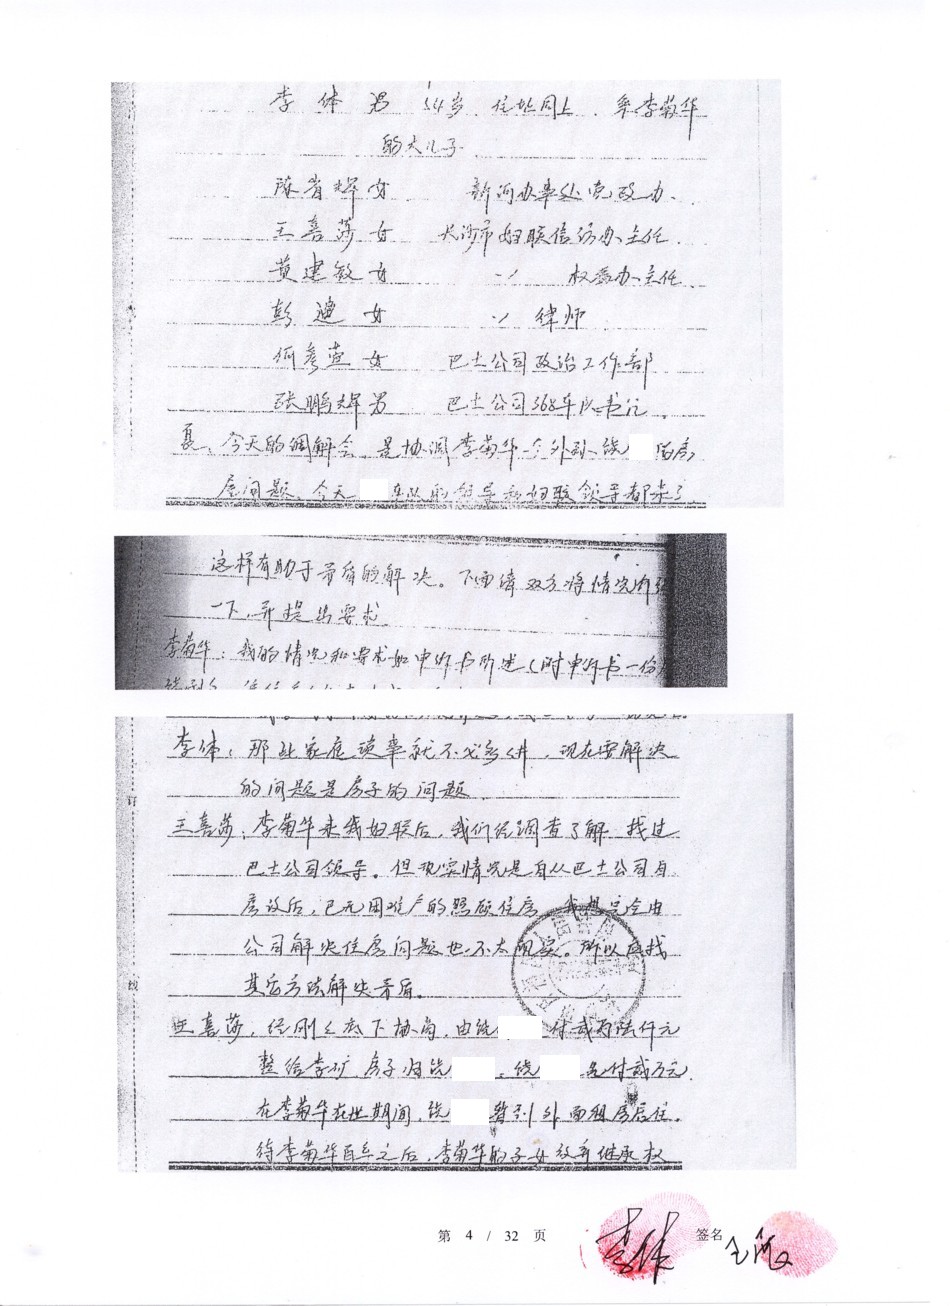 李体 男 54岁 住址同上. 系李菊华
的大儿子
陈岩辉 女 新河办事处党政办.
王喜莎 女 长沙市妇联信访办主任.
黄建敏 女 〃 权益办主任
彭迪 女 〃 律师
何彦萱 女 巴士公司政治工作部
张鹏辉 男 巴士公司368车队书记
夏: 今天的调解会, 是协调李菊华一个外孙饶 佰房
屋问题. 今天 车队的领导和妇联领导都来了
这样有助于矛盾的解决。下面请双方将情况介绍
一下, 并提出要求
李菊华: 我的情况和要求如申诉书所述 (附申诉书一份
李体: 那些家庭琐事就不必多讲, 现在要解决
的问题是房子的问题.
王喜莎: 李菊华来我妇联后, 我们经调查了解. 找过
巴士公司领导。但现实情况是自从巴士公司自
房改后, 已无困难户的照顾住房. 我想完全由
公司解决住房问题也不太现实。所以应找
其它方法解决矛盾。
王喜莎: 经刚才底下协商, 由饶 付贰万陆仟元
整给李矿 房子归饶 。饶 先付贰万元.
在李菊华在世期间, 饶 暂到外面租房居住.
待李菊华百年之后, 李菊华的子女放弃继承权
第 4 / 32 页
签名
李体